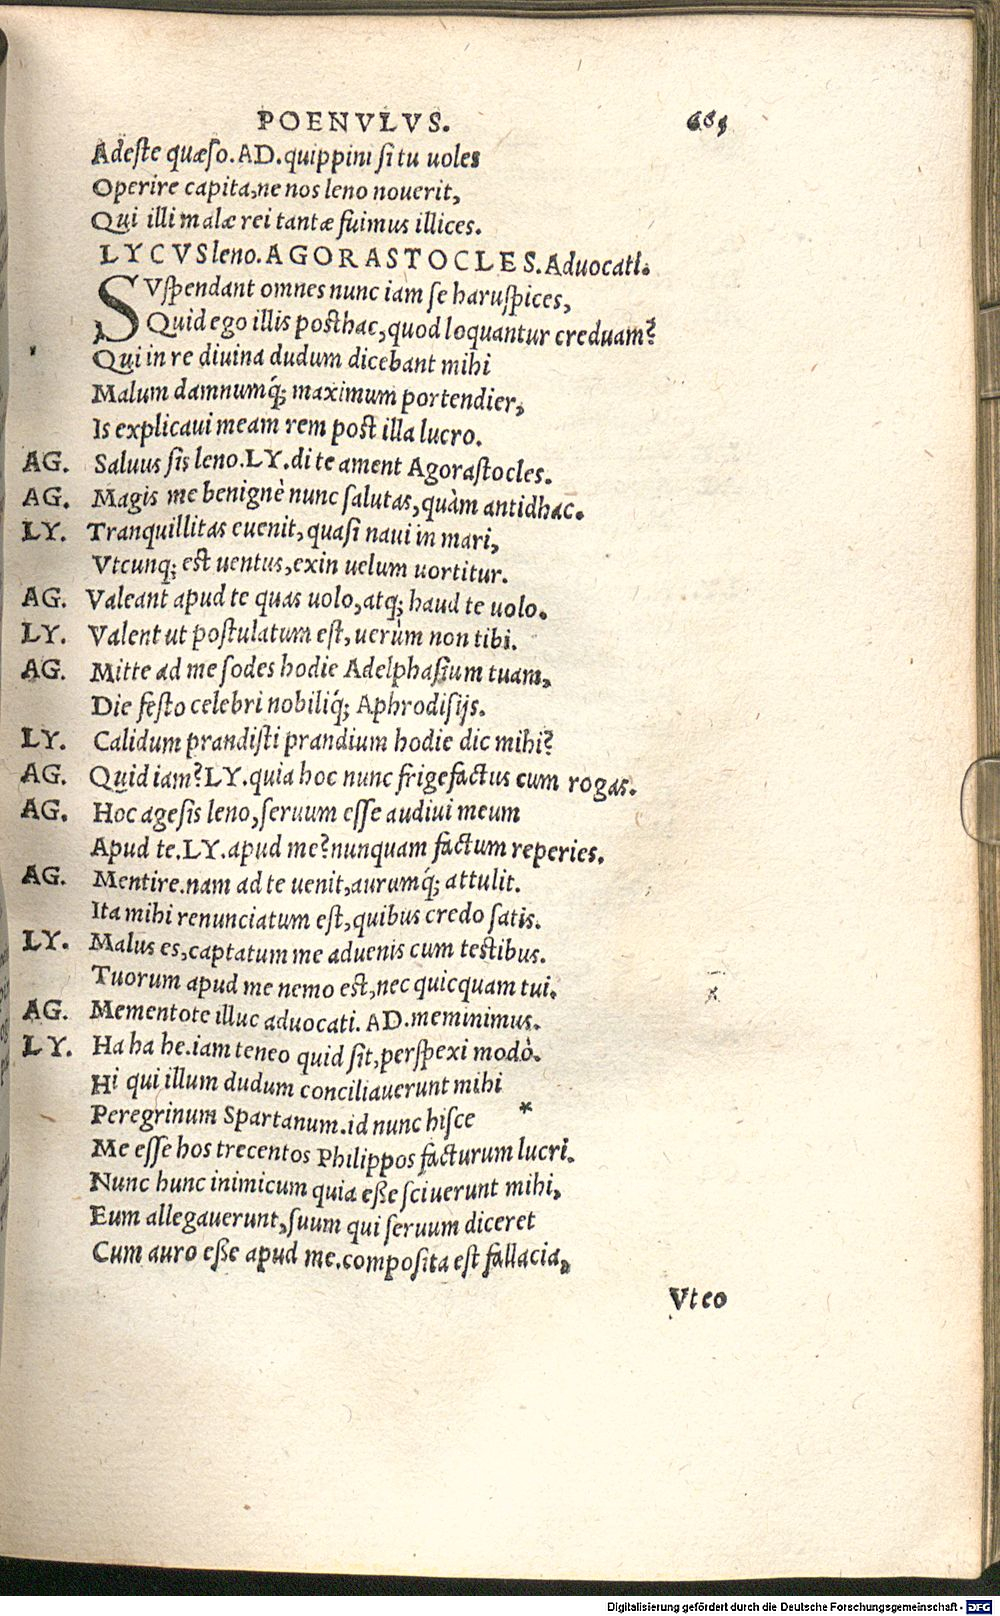 POENVLVS. 685
Adeste quæso. AD. quippini si tu uoles
Operire capita, ne nos leno nouerit,
Qui illi malæ rei tantæ fuimus illices.
LYCVS leno. AGORASTOCLES. Aduocati.
SVspendant omnes nunc iam se haruspices,
Quid ego illis posthac, quod loquantur creduam?
Qui in re diuina dudum dicebant mihi
Malum damnumq́; maximum portendier,
Is explicaui meam rem post illa lucro.
AG. Saluus sis leno. LY. di te ament Agorastocles.
AG. Magis me benignè nunc salutas, quàm antidhac.
LY. Tranquillitas euenit, quasi naui in mari,
Vtcunq; est uentus, exin uelum uortitur.
AG. Valeant apud te quas uolo, atq; haud te uolo.
LY. Valent ut postulatum est, uerùm non tibi.
AG. Mitte ad me sodes hodie Adelphasium tuam,
Die festo celebri nobiliq́; Aphrodisijs.
LY. Calidum prandisti prandium hodie dic mihi?
AG. Quid iam? LY. quia hoc nunc frigefactus cum rogas.
AG. Hoc agesis leno, seruum esse audiui meum
Apud te. LY. apud me? nunquam factum reperies.
AG. Mentire. nam ad te uenit, aurumq́; attulit.
Ita mihi renunciatum est, quibus credo satis.
LY. Malus es, captatum me aduenis cum testibus.
Tuorum apud me nemo est, nec quicquam tui.
AG. Mementote illuc aduocati. AD. meminimus.
LY. Ha ha he. iam teneo quid sit, perspexi modò.
Hi qui illum dudum conciliauerunt mihi
Peregrinum Spartanum. id nunc hisce *
Me esse hos trecentos Philippos facturum lucri.
Nunc hunc inimicum quia esse sciuerunt mihi,
Eum allegauerunt, suum qui seruum diceret
Cum auro esse apud me. composita est fallacia,
Vt eo
Digitalisierung gefördert durch die Deutsche Forschungsgemeinschaft - DFG